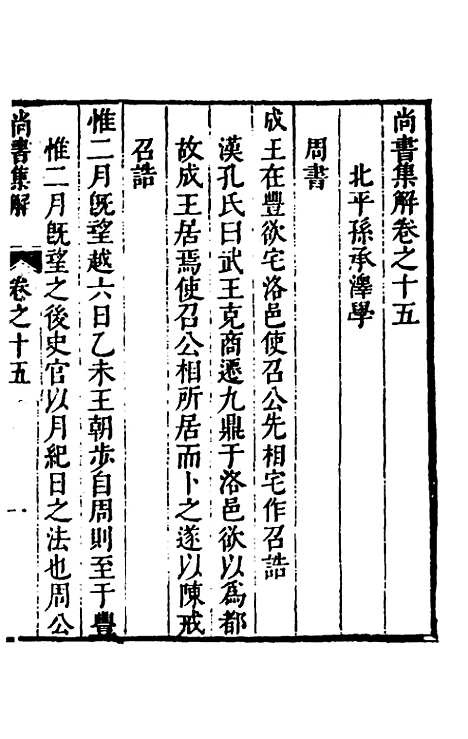 尚書集解卷之十五
北平孫承澤學
周書
成王在豐欲宅洛邑使召公先相宅作召誥
漢孔氏曰武王克商遷九鼎于洛邑欲以爲都
故成王居焉使召公相所居而卜之遂以陳戒
召誥
惟二月旣望越六日乙未王朝步自周則至于豐
惟二月旣望之後史官以月紀日之法也周公
尚書集解 卷之十五 一